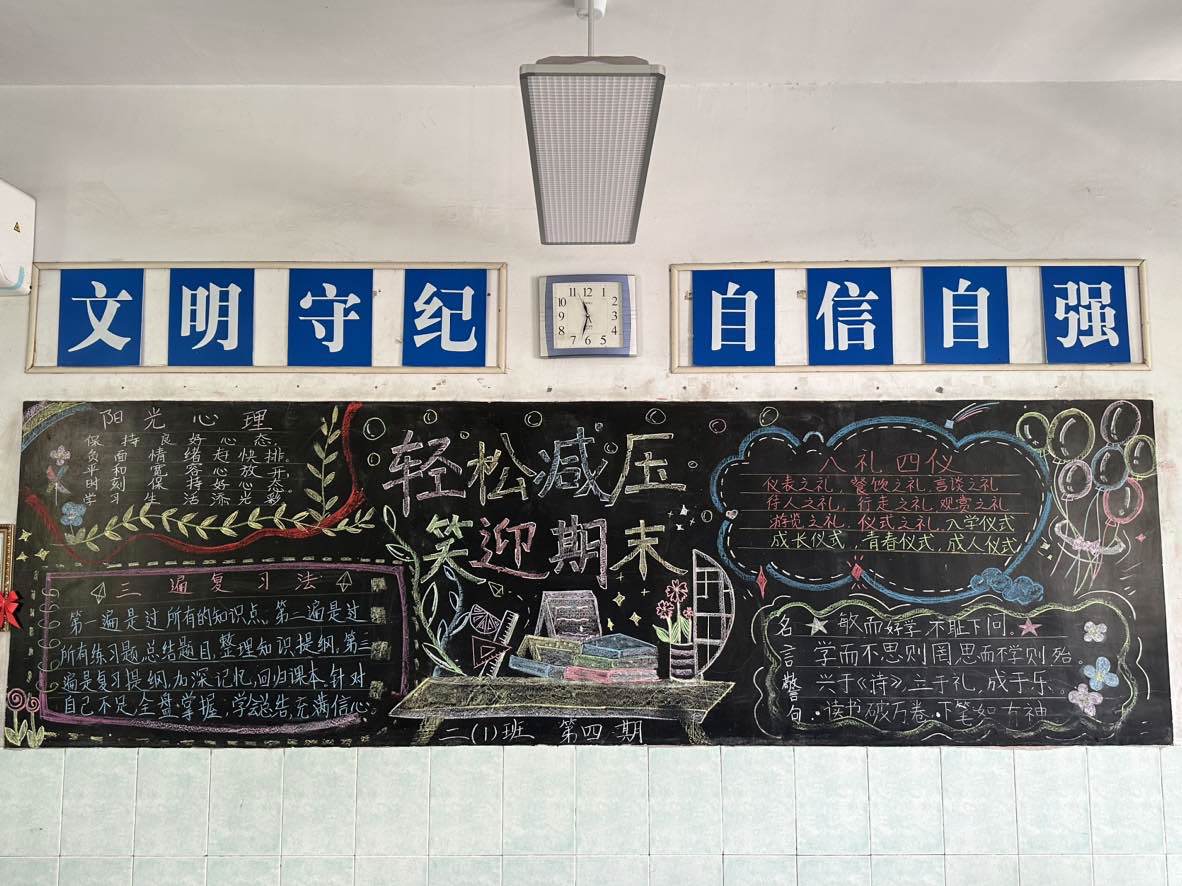 文明守纪
自信自强
11 12 1
10 2
9 3
8 4
7 6 5
阳光心理
保持良好心态,
负面情绪赶快排,
平和宽容心放开,
时刻保持好心态,
学习生活添光彩
三遍复习法
第一遍是过所有的知识点,第二遍是过
所有练习题,总结题目,整理知识提纲,第三
遍是复习提纲,加深记忆,回归课本,针对
自己不足,全盘掌握,学会总结,充满信心。
轻松减压
笑迎期末
二(1)班 第四期
八礼四仪
仪表之礼,餐饮之礼,言谈之礼
待人之礼,行走之礼,观赏之礼
游览之礼,仪式之礼,入学仪式
成长仪式,青春仪式,成人仪式
名言警句
敏而好学,不耻下问。
学而不思则罔,思而不学则殆。
兴于《诗》,立于礼,成于乐。
读书破万卷,下笔如有神